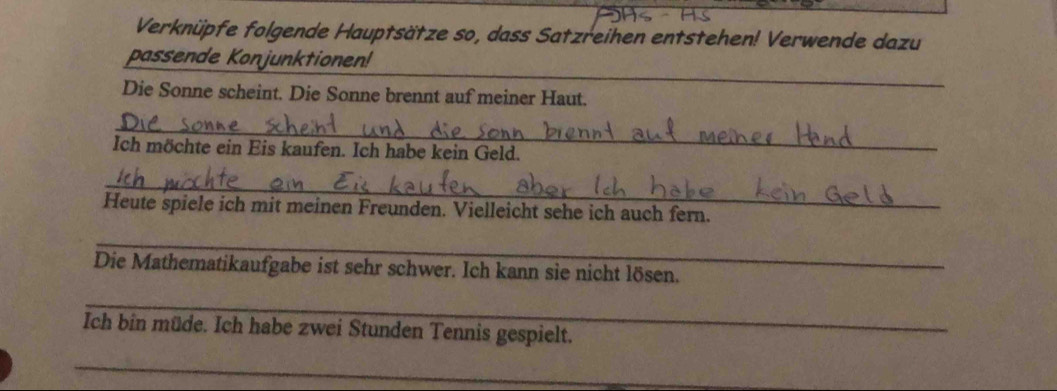 HS - HS
Verknüpfe folgende Hauptsätze so, dass Satzreihen entstehen! Verwende dazu
passende Konjunktionen!
Die Sonne scheint. Die Sonne brennt auf meiner Haut.
Die sonne scheint und die sonn brennt auf meiner Hand
Ich möchte ein Eis kaufen. Ich habe kein Geld.
Ich möchte ein Eis kaufen aber Ich habe kein Geld
Heute spiele ich mit meinen Freunden. Vielleicht sehe ich auch fern.
Die Mathematikaufgabe ist sehr schwer. Ich kann sie nicht lösen.
Ich bin müde. Ich habe zwei Stunden Tennis gespielt.